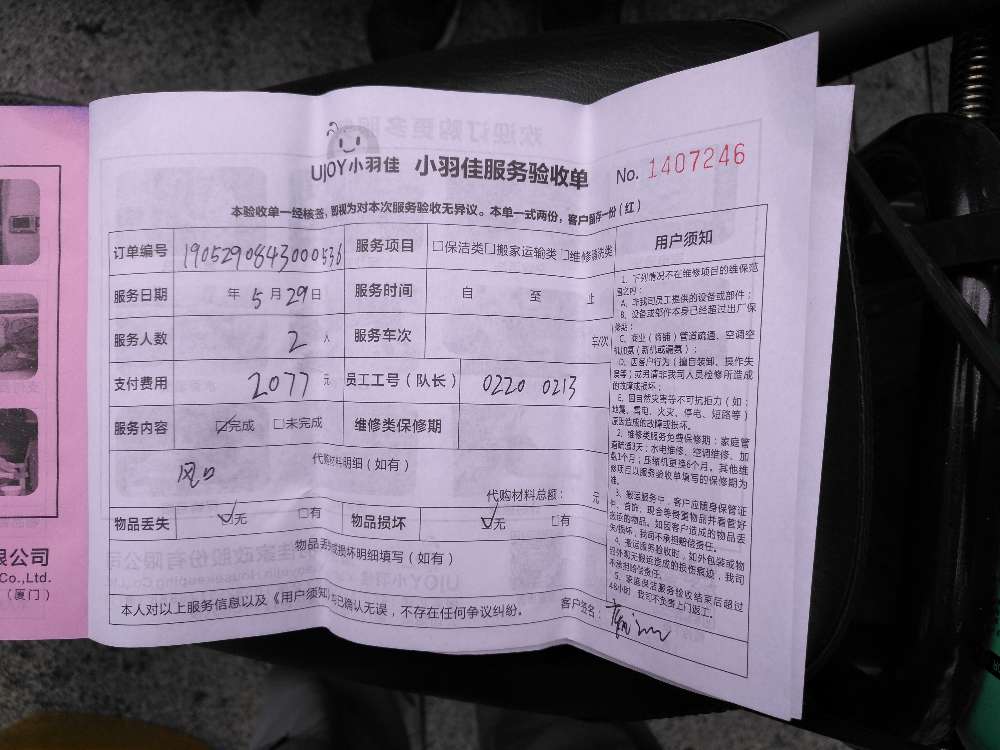 UJOY小羽佳 小羽佳服务验收单 No. 1407246
本验收单一经核签,即视为对本次服务验收无异议。本单一式两份,客户留存一份(红)
订单编号 190529084300536 服务项目 □保洁类□搬家运输类□维修清洗类
服务日期 年5月29日 服务时间 自 至 止
服务人数 2人 服务车次 车/次
支付费用 2077元 员工工号(队长) 0220 0213
服务内容 ☑完成 □未完成 维修类保修期
代购材料明细(如有)
风口
代购材料总额: 元
物品丢失 ☑无 □有 物品损坏 ☑无 □有
物品丢失或损坏明细填写(如有)
本人对以上服务信息以及《用户须知》均已确认无误,不存在任何争议纠纷。 客户签名:
用户须知
1、下列情况不在维修项目的维保范
围之内:
A、非我司员工提供的设备或部件;
B、设备或部件本身已经超过出厂保
修期;
C、商业(商铺)管道疏通、空调空
机加氨(新机或漏氨);
D、因客户行为(擅自装卸、操作失
误等)或另请非我司人员检修所造成
的故障或损坏;
E、因自然灾害等不可抗拒力(如:
地震、雷电、火灾、停电、短路等)
原因造成的故障或损坏。
2、维修类服务免费保修期:家庭管
道疏通3天;水电维修、空调维修、加
氨1个月;压缩机更换6个月。其他维
修项目以服务验收单填写的保修期为
准。
3、搬运服务中,客户应随身保管证
件、首饰、现金等贵重物品并看管好
搬运的物品。如因客户造成的物品丢
失/损坏,我司不承担赔偿责任。
4、搬运服务验收时,如外包装或物
品外表无搬运造成的损伤痕迹,我司
不承担赔偿责任。
5、家庭保洁服务验收结束后超过
48小时,我司不负责上门返工。
限公司
Co.,Ltd.
(厦门)